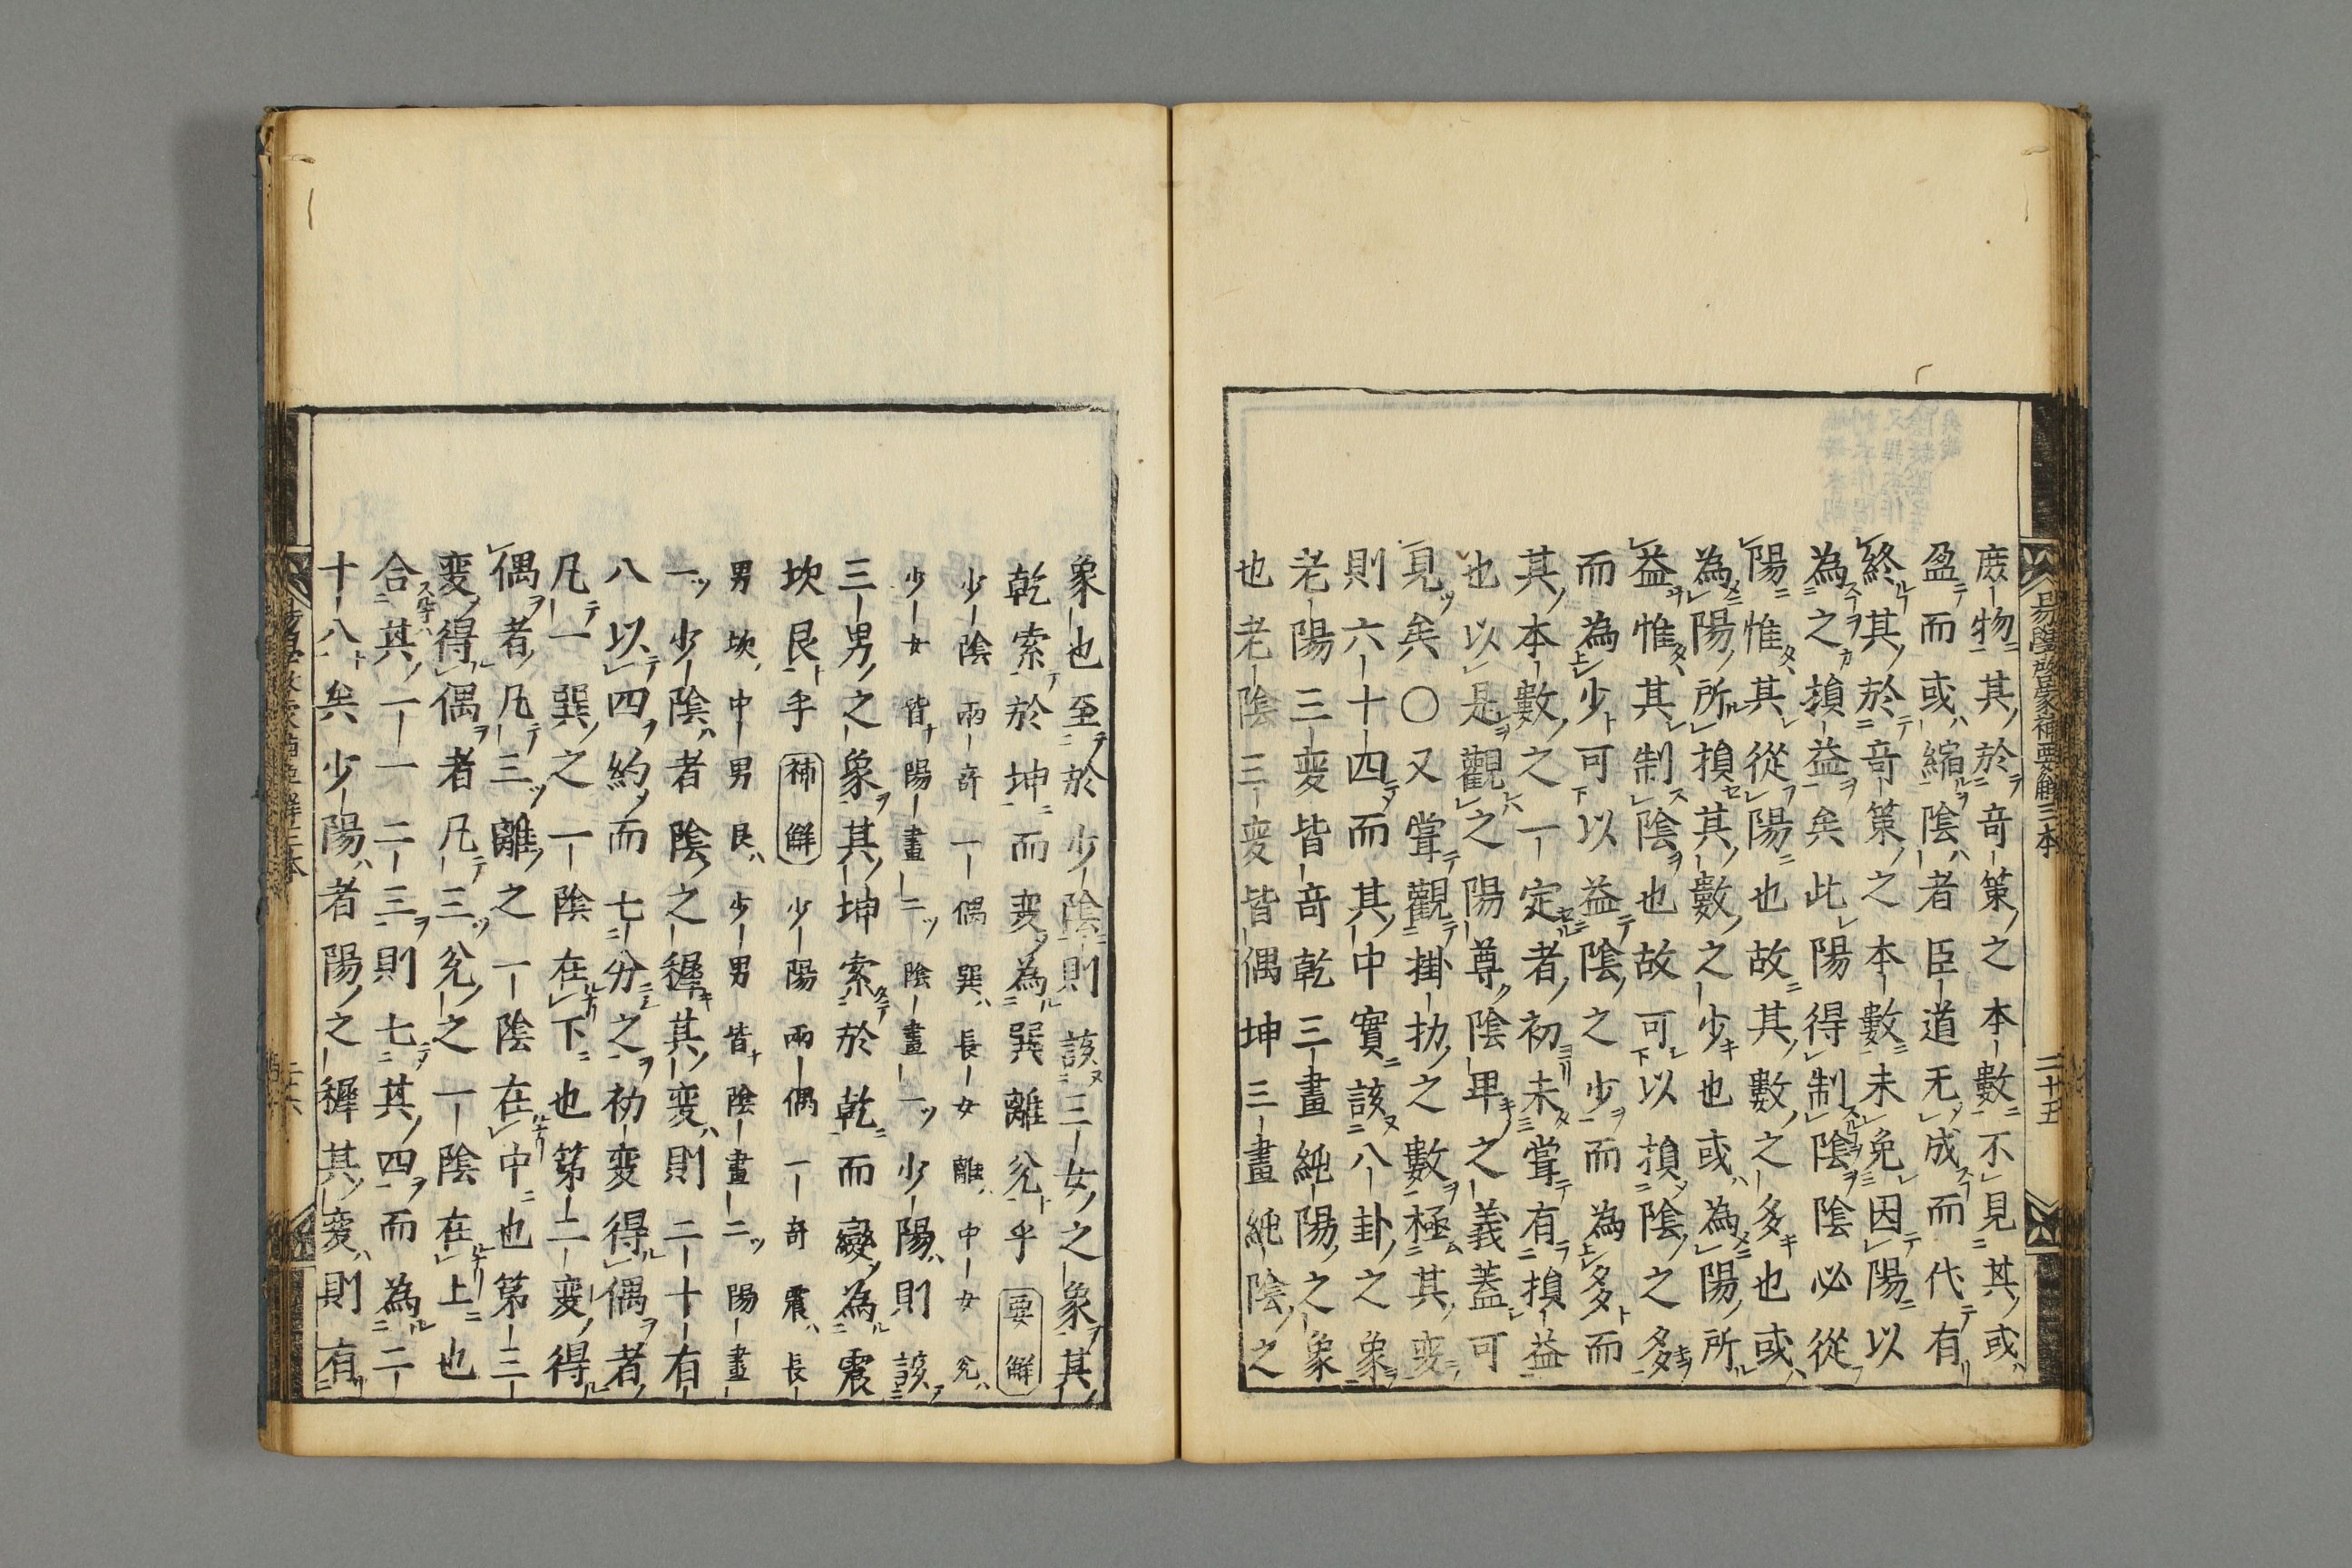 庻物其於奇策之本數不見其或
盈而或縮陰者臣道无成而代有
終其於奇策之本數未免因陽以
為之損益矣此陽得制陰陰必從
陽惟其從陽也故其數之多也或
為陽所損其數之少也或為陽所
益惟其制陰也故可以損陰之多
而為少可以益陰之少而為多而
其本數之一定者初未甞有損益
也以是觀之陽尊陰卑之義蓋可
見矣〇又甞觀掛扐之數極其変
則六十四而其中實該八卦之象
老陽三変皆奇乾三畫純陽之象
也老陰三変皆偶坤三畫純陰之
易學啟蒙補要解三本
二十五
象也至於少陰則該三女之象其
乾索於坤而変為巽離兊乎 要解
少陰兩奇一偶巽長女離中女兊
少女皆陽畫二陰畫一少陽則該
三男之象其坤索於乾而變為震
坎艮乎 補解 少陽兩偶一奇震長
男坎中男艮少男皆陰畫二陽畫
一少陰者陰之穉其変則二十有
八以四約而七分之初変得偶者
凡一巽之一陰在下也第二変得
偶者凡三離之一陰在中也第三
変得偶者凡三兊之一陰在上也
合其一一二三則七其四而為二
十八矣少陽者陽之穉其変則有